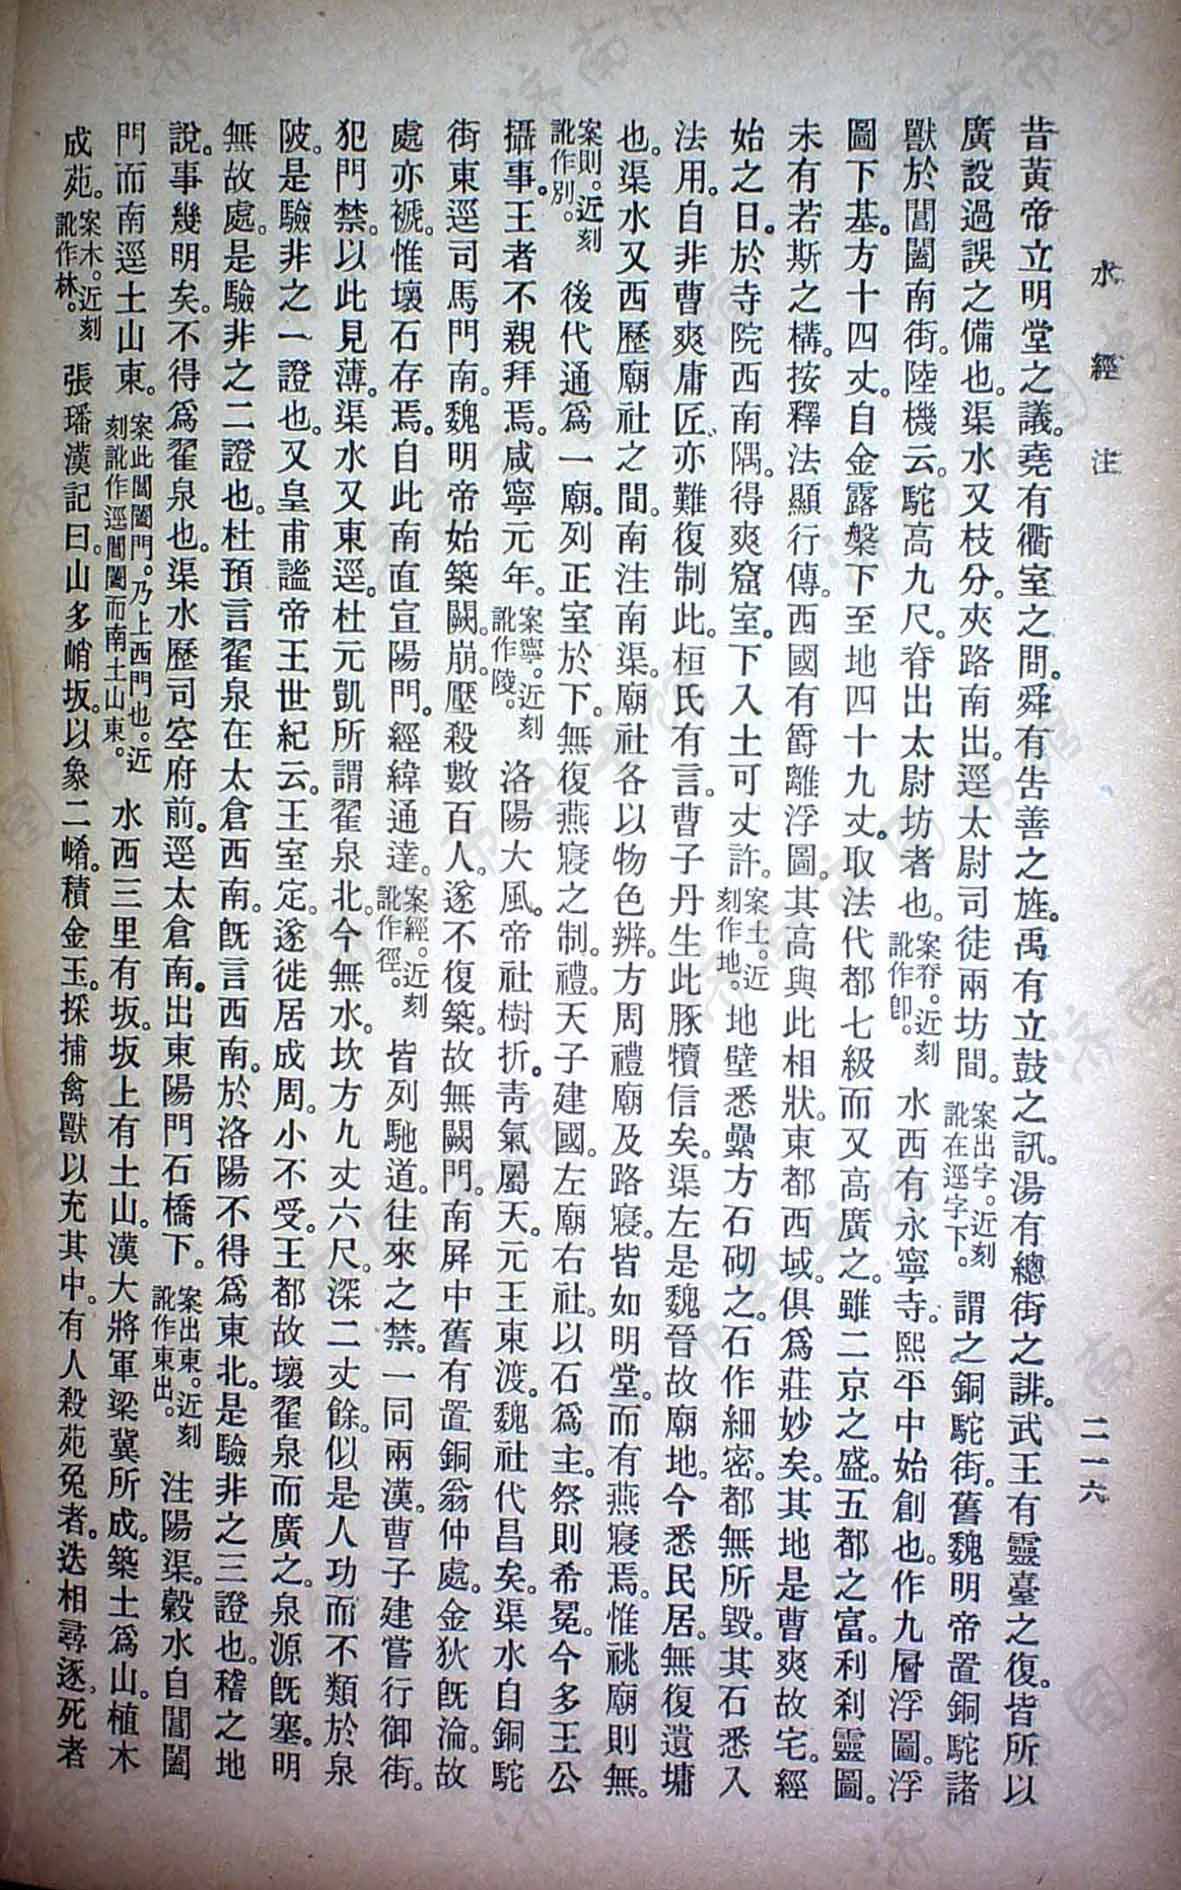 水經注
二一六
昔黃帝立明堂之議。堯有衢室之問。舜有告善之旌。禹有立鼓之訊。湯有總街之誹。武王有靈臺之復。皆所以
廣設過誤之備也。渠水又枝分。夾路南出。逕太尉司徒兩坊間。案出字。近刻訛在逕字下。謂之銅駝街。舊魏明帝置銅駝諸
獸於閶闔南街。陸機云。駝高九尺。脊出太尉坊者也。案脊。近刻訛作卽。水西有永寧寺。熙平中始創也。作九層浮圖。浮
圖下基。方十四丈。自金露槃下至地四十九丈。取法代都七級而又高廣之。雖二京之盛。五都之富。利刹靈圖。
未有若斯之構。按釋法顯行傳。西國有爵離浮圖。其高與此相狀。東都西域。俱爲莊妙矣。其地是曹爽故宅。經
始之日。於寺院西南隅。得爽窟室。下入土可丈許。案土。近刻作地。地壁悉壘方石砌之。石作細密。都無所毀。其石悉入
法用。自非曹爽庸匠。亦難復制此。桓氏有言。曹子丹生此豚犢信矣。渠左是魏晉故廟地。今悉民居。無復遺墉
也。渠水又西歷廟社之間。南注南渠。廟社各以物色辨。方周禮廟及路寢。皆如明堂。而有燕寢焉。惟祧廟則無。
案則。近刻訛作別。後代通爲一廟。列正室於下。無復燕寢之制。禮。天子建國。左廟右社。以石爲主。祭則希冕。今多王公
攝事。王者不親拜焉。咸寧元年。案寧。近刻訛作陵。洛陽大風。帝社樹折。青氣屬天。元王東渡。魏社代昌矣。渠水自銅駝
街東逕司馬門南。魏明帝始築闕。崩。壓殺數百人。遂不復築。故無闕門。南屏中舊有置銅翁仲處。金狄旣淪。故
處亦褫。惟壞石存焉。自此南直宣陽門。經緯通達。案經。近刻訛作徑。皆列馳道。往來之禁。一同兩漢。曹子建嘗行御街。
犯門禁。以此見薄。渠水又東逕。杜元凱所謂翟泉北。今無水。坎方九丈六尺。深二丈餘。似是人功而不類於泉
陂。是驗非之一證也。又皇甫謐帝王世紀云。王室定。遂徙居成周。小不受。王都故壞翟泉而廣之。泉源旣塞。明
無故處。是驗非之二證也。杜預言翟泉在太倉西南。旣言西南。於洛陽不得爲東北。是驗非之三證也。稽之地
說。事幾明矣。不得爲翟泉也。渠水歷司空府前。逕太倉南。出東陽門石橋下。案出東。近刻訛作東出。注陽渠。穀水自閶闔
門而南逕土山東。案此閶闔門。乃上西門也。近刻訛作逕閶闔而南土山東。水西三里有坂。坂上有土山。漢大將軍梁冀所成。築土爲山。植木
成苑。案木。近刻訛作林。張璠漢記曰。山多峭坂。以象二崤。積金玉。採捕禽獸以充其中。有人殺苑兔者。迭相尋逐。死者